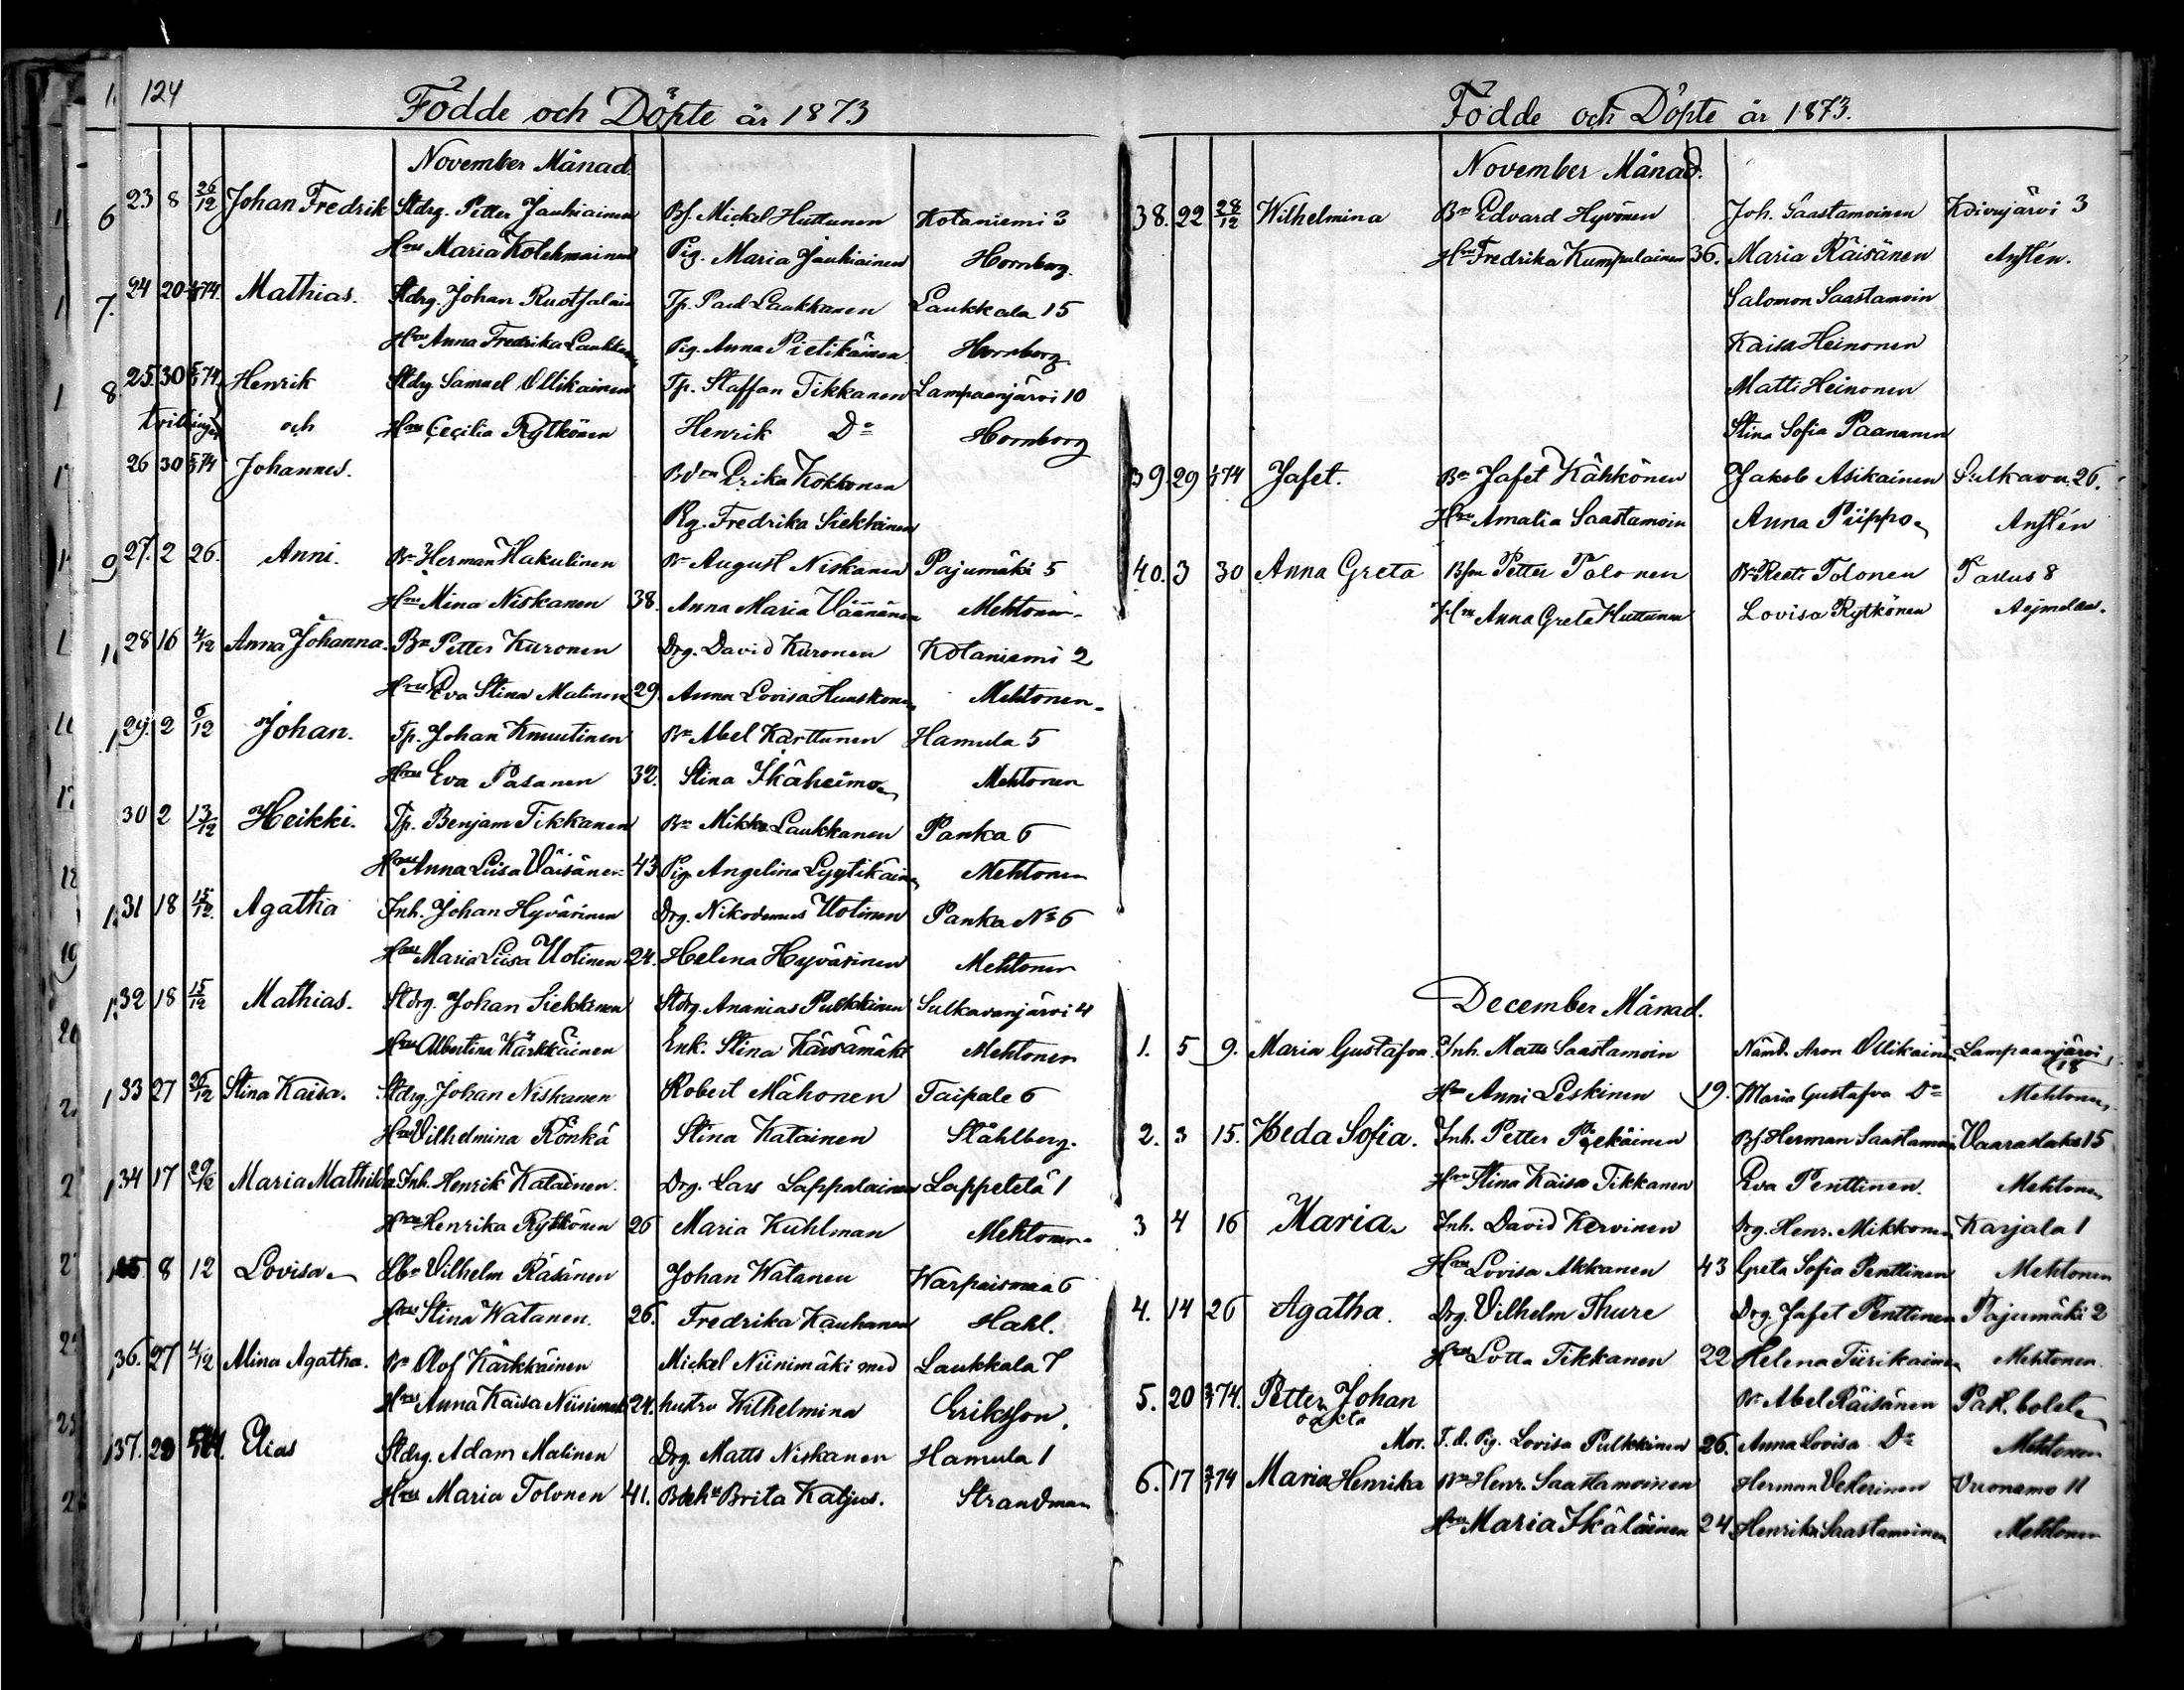 124
Födde och Döpte år 1873
November Månad.
23 8 26/12 Johan Fredrik Stdrg. Petter Jauhiainen Bf. Mickel Huttunen Kotaniemi 3
Hru Maria Kolehmainen Pig. Maria Jauhiainen Hornborg.
24 20 74. Mathias. Stdrg. Johan Ruotsalain Tp. Paul Laukkanen Laukkala 15
Hru Anna Fredrika Laukkanen Pig. Anna Pietikäinen Hornborg
25. 30 74 Henrik Stdrg Samuel Ollikainen Tp. Staffan Tikkanen Lampaanjärvi 10
tvillingar och Hru Cecilia Rytkönen Henrik Do Hornborg
26 30 74 Johannes. Erika Kokkonen
Pig. Fredrika Siekkinen
27. 2 26. Anni. Bn Herman Hakulinen Bn August Niskanen Pajumäki 5
Hru Mina Niskanen 38. Anna Maria Väänänen Mehtonen.
28 16 4/12 Anna Johanna. Bn Petter Kuronen Drg. David Kuronen Kotaniemi 2
Hru Eva Stina Matinen 29. Anna Lovisa Huuskonen Mehtonen.
29. 2 6/12 Johan. Tp. Johan Knuutinen Bn Abel Karttunen Hamula 5
Hru Eva Pasanen 32. Stina Ikäheimo Mehtonen
30 2 13/12 Heikki. Tp. Benjam Tikkanen Bn Mikko Laukkanen Panka 6
Hru Anna Liisa Väisänen 43. Pig Angelina Lyytikäinen Mehtonen
31 18 15/12. Agatha Inh. Johan Hyvärinen Drg. Nikodemus Uotinen Panka No 6
Hru Maria Liisa Uotinen 24. Helena Hyvärinen Mehtonen
32 18 15/12 Mathias. Stdrg. Johan Siekkinen Stdrg. Ananias Pulkkinen Sulkavanjärvi 4
Hru Albertina Kärkkäinen Enk. Stina Kärsämäki Mehtonen
33 27 26/12 Stina Kaisa. Stdrg. Johan Niskanen Robert Mähonen Taipale 6
Hru Vilhelmina Rönkä Stina Katainen Ståhlberg.
34 17 29/12 Maria Mathilda Inh. Henrik Katainen. Drg. Lars Lappalainen Lappetelä 1
Hru Henrika Rytkönen 26 Maria Kuhlman Mehtonen.
35 8 12 Lovisa Vilhelm Räsänen Johan Watanen Warpaismaa 6
Hru Stina Watanen. 26. Fredrika Kauhanen Hahl.
36. 27 4/12 Alina Agatha. Bn Olof Kärkkäinen Mickel Niinimäki med Laukkala 7
Hru Anna Kaisa Niinimäki 24. hustru Wilhelmina Eriksson.
37. 23 Elias Stdrg. Adam Matinen Drg. Matts Niskanen Hamula 1
Hru Maria Tolonen 41. Brita Katjus. Strandman
Födde och Döpte år 1873.
November Månad.
38. 22 28/12 Wilhelmina Bn Edvard Hyvönen Joh. Saastamoinen Koivujärvi 3
Hru Fredrika Kumpulainen 36. Maria Räisänen Anstén.
Salomon Saastamoin
Kaisa Heinonen
Matti Heinonen
Stina Sofia Paananen
39. 29 74 Jafet. Bn Jafet Kähkönen Jakob Asikainen Sulkava 26.
Hru Amalia Saastamoin Anna Piippo Anstén
40. 3 30 Anna Greta Petter Tolonen Tolonen 8
Hru Anna Greta Huttunen Lovisa Rytkönen
December Månad.
1. 5 9. Maria Gustafva. Inh. Matts Saastamoin Nämd. Aron Ollikainen Lampaanjärvi
18
Hru Anni Leskinen 19. Maria Gustafva Do Mehtonen.
2. 3 15. Heda Sofia. Inh. Petter Bf. Herman Saastamoin Vaaraslaks 15
Hru Stina Kaisa Tikkanen Eva Penttinen. Mehtonen
3 4 16 Maria. Inh. David Kervinen Drg. Henr. Mikkonen Karjala 1
Hru Lovisa Akkanen 43 Greta Sofia Penttinen Mehtonen
4. 14 26 Agatha. Drg. Vilhelm Thure Drg. Jafet Penttinen Pajumäki 2
Hru Lotta Tikkanen 22 Helena Tiirikainen Mehtonen
5. 20 74. Petter Johan Bn Abel Räisänen
oäkta
Mor. T. d. Pig. Lovisa Pulkkinen 26. Anna Lovisa Do Mehtonen
6. 17 74 Maria Henrika Bn Henr. Saastamoinen Herman Vekerinen Vuonamo 11
Hru Maria Ikäläinen 24 Henrika Saastamoinen Mehtonen